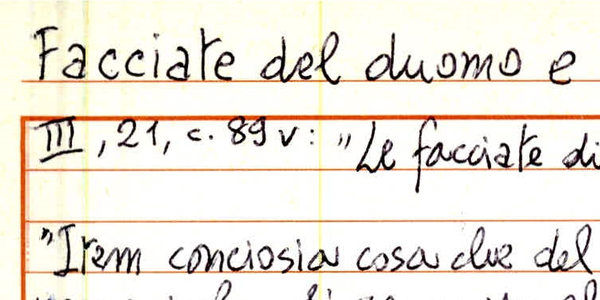 Facciate del duomo e
III, 21, c. 89 v: "Le facciate di
"Item conciosia cosa che del